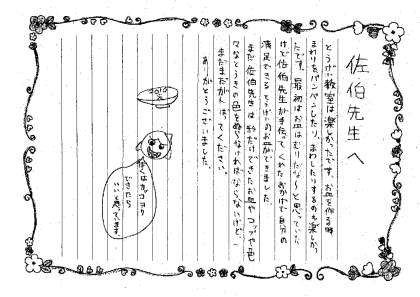 佐伯先生へ
とうげい教室は楽しかったです。お皿を作る時
まわりをパンパンしたり、まわしたりするのも楽しかっ
たです。最初はお皿はむりだな〜と思っていた
けど佐伯先生が手伝ってくれたおかげで自分の
満足できるとうげいのお皿ができました。
まだ佐伯先生は形だけできたお皿やコップや色
々なとうきの色をぬらなければならないけど、
まだまだがんばってください。
ありがとうございました。
ぼくはカッコヨク
できたら
いいと思っています。